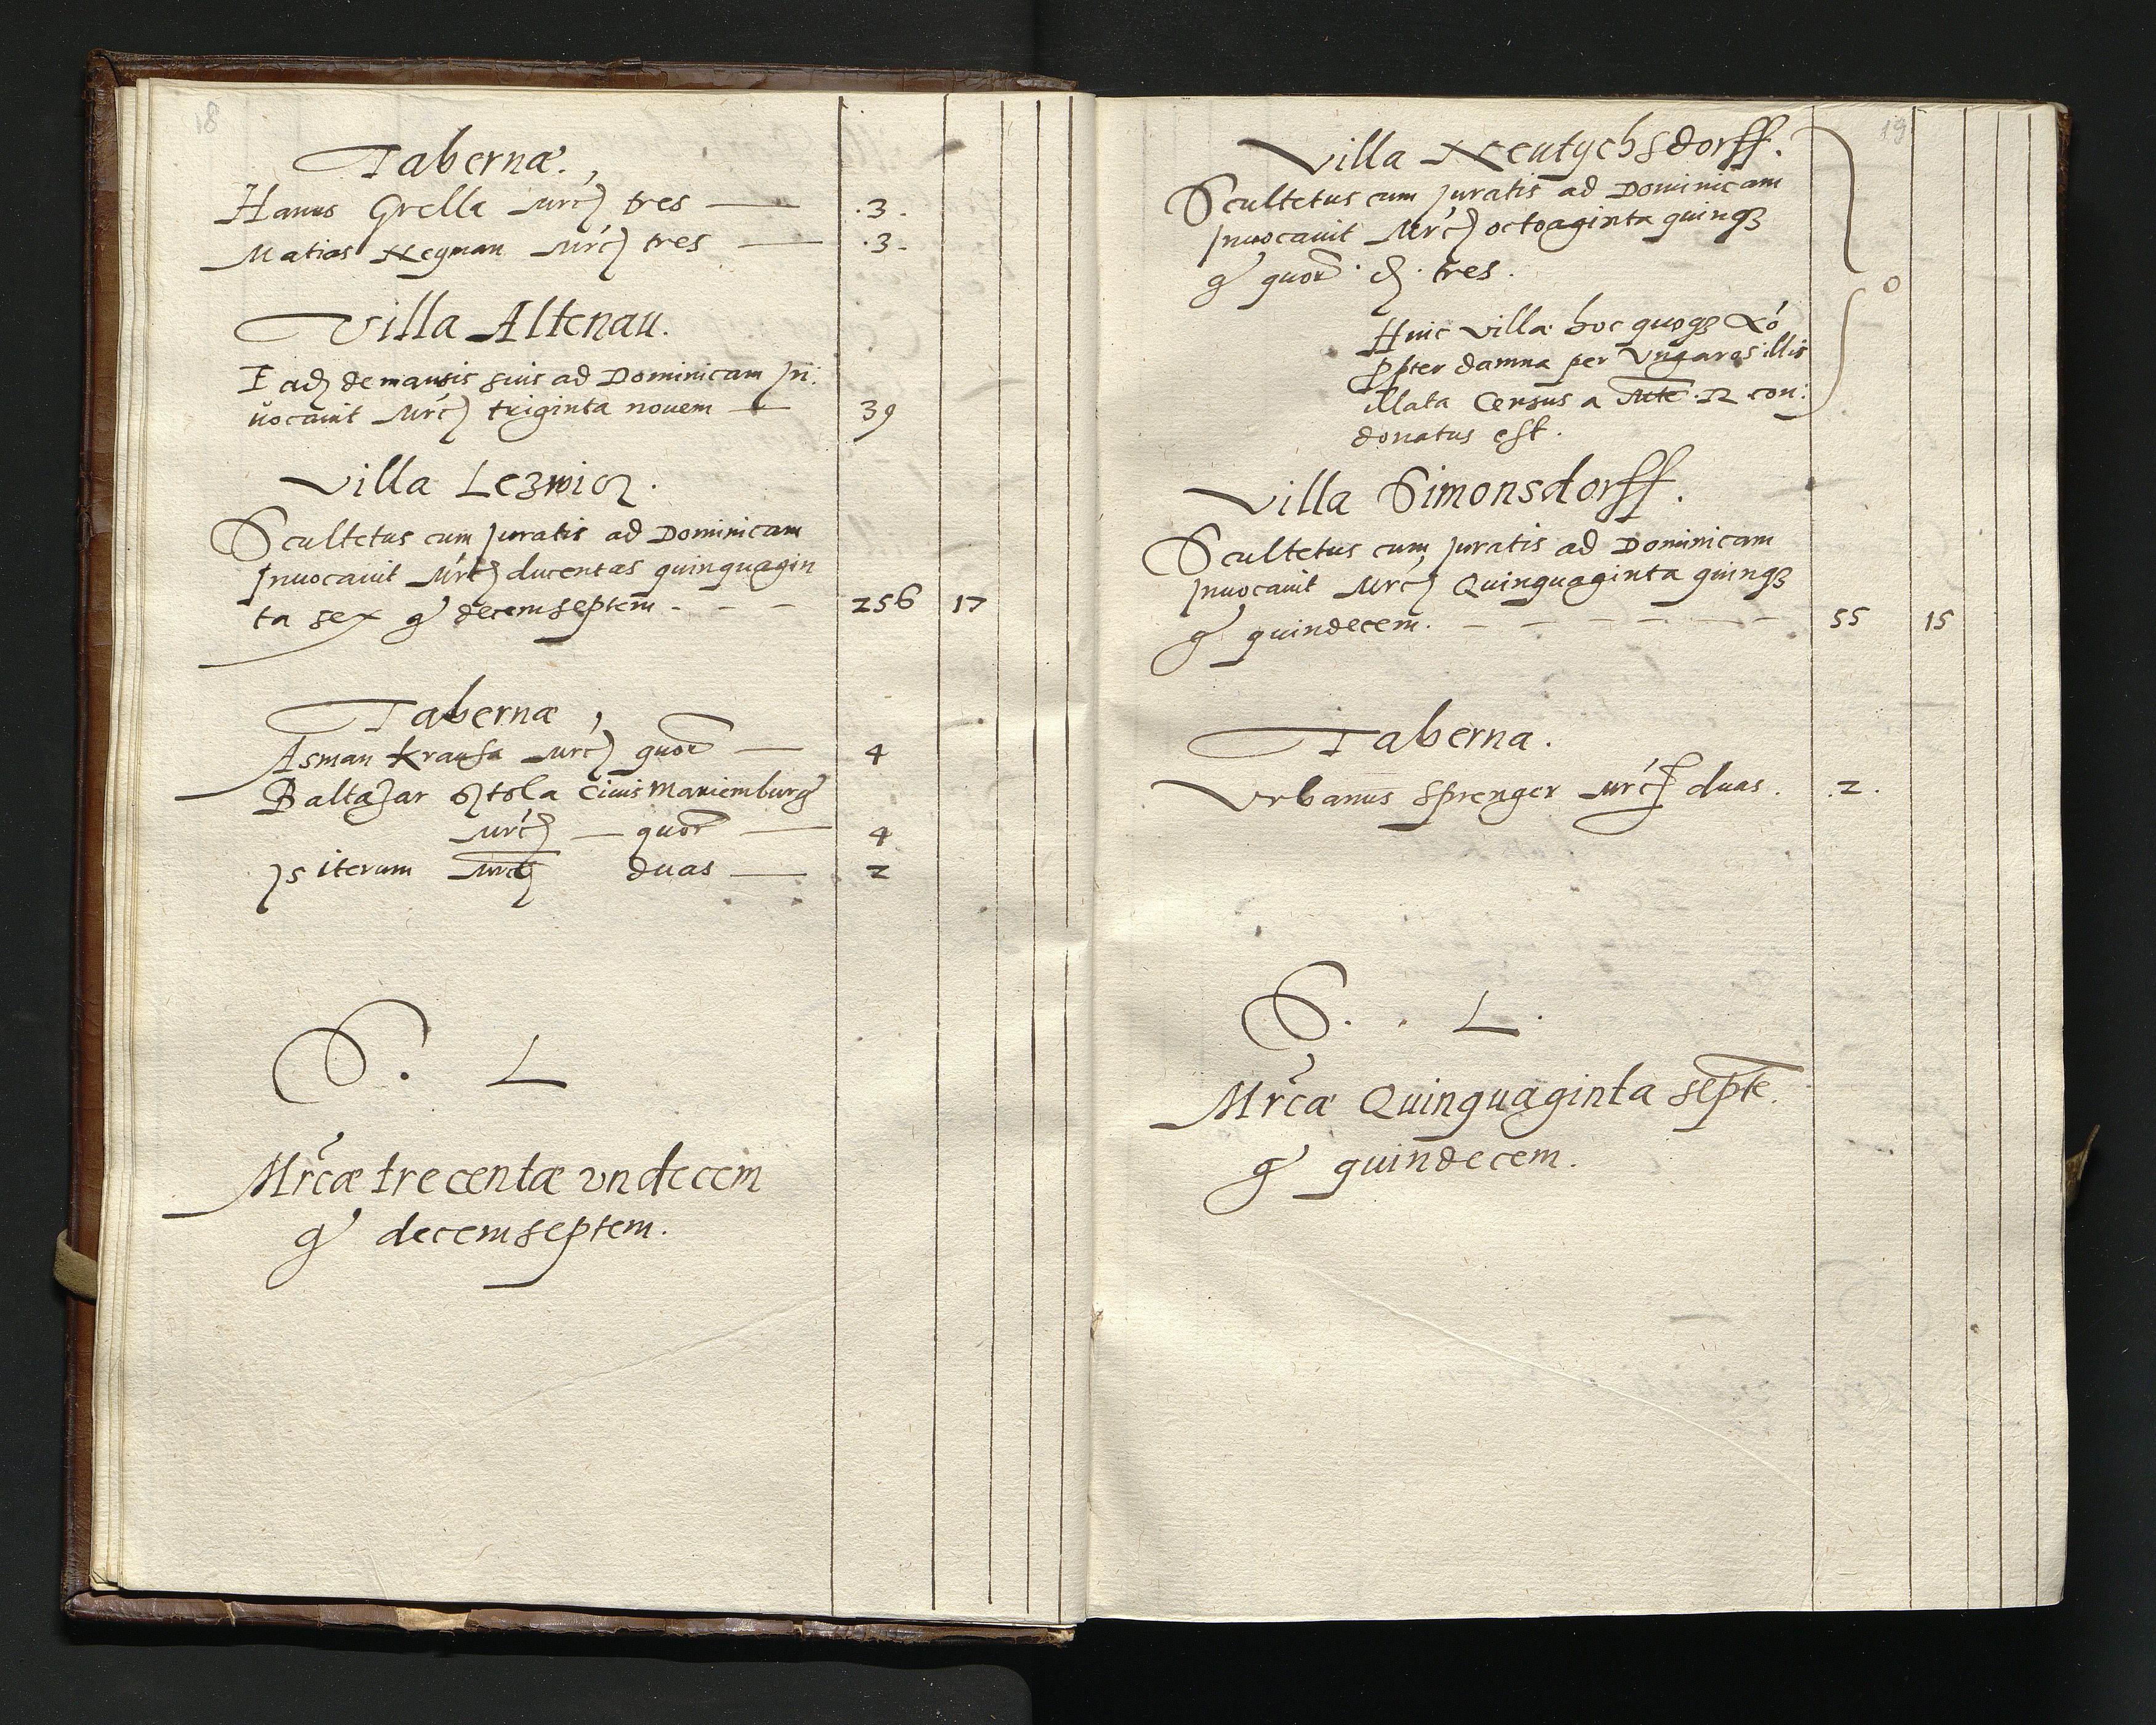 18
Tabernæ.,
Hanus Grella Mrc) tres — .3.
Matias Neyman Mrc) tres — .3.
Villa Altenau.
Eadē de mansis suis ad Dominicam In:
uocauit Mrc) triginta nouem — 39
Villa Lezwicz.
Scultetus cum Iuratis ad Dominicam
Inuocauit Mrc) ducentas quinquagin
ta sex g decemseptem - - - 256 17
Tabernæ,
Asman Krausa Mrc) quor — 4
Baltazar Stola Ciuis Mariemburg
Mrc) — quor — 4
Is iterum Mrc) duas — 2
S. L
Mrcæ trecentæ vndecem
g decemseptem.
19
Villa Neutychsdorff.
Scultetus cum Iuratis ad Dominicam
Inuocauit Mrc) octoaginta quinqz
g quor. d. tres.
Huic villæ hoc quoqz
ppter damna per Vngaros illis
illata Census a Mte R con:
donatus est.
0
Villa Simonsdorff.
Scultetus cum Iuratis ad Dominicam
Inuocauit Mrc) Quinquaginta quinqz
g quindecem. - - - - - - 55 15
Taberna.
Vrbanus Sprenger Mrc) duas. .2.
S. . L.
Mrcæ Quinquaginta septē.
g quindecem.